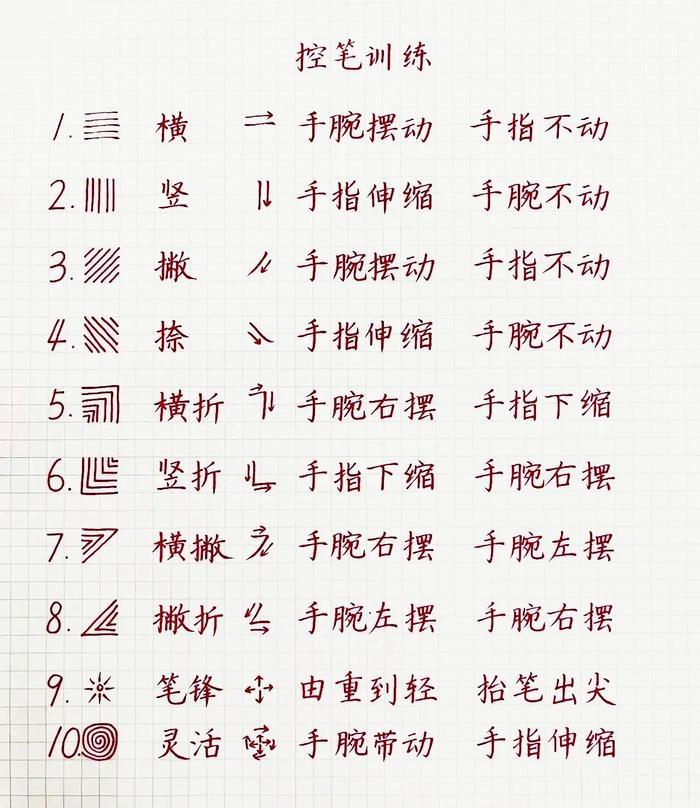 控笔训练
1. 横 手腕摆动 手指不动
2. 竖 手指伸缩 手腕不动
3. 撇 手腕摆动 手指不动
4. 捺 手指伸缩 手腕不动
5. 横折 手腕右摆 手指下缩
6. 竖折 手指下缩 手腕右摆
7. 横撇 手腕右摆 手腕左摆
8. 撇折 手腕左摆 手腕右摆
9. 笔锋 由重到轻 抬笔出尖
10. 灵活 手腕带动 手指伸缩